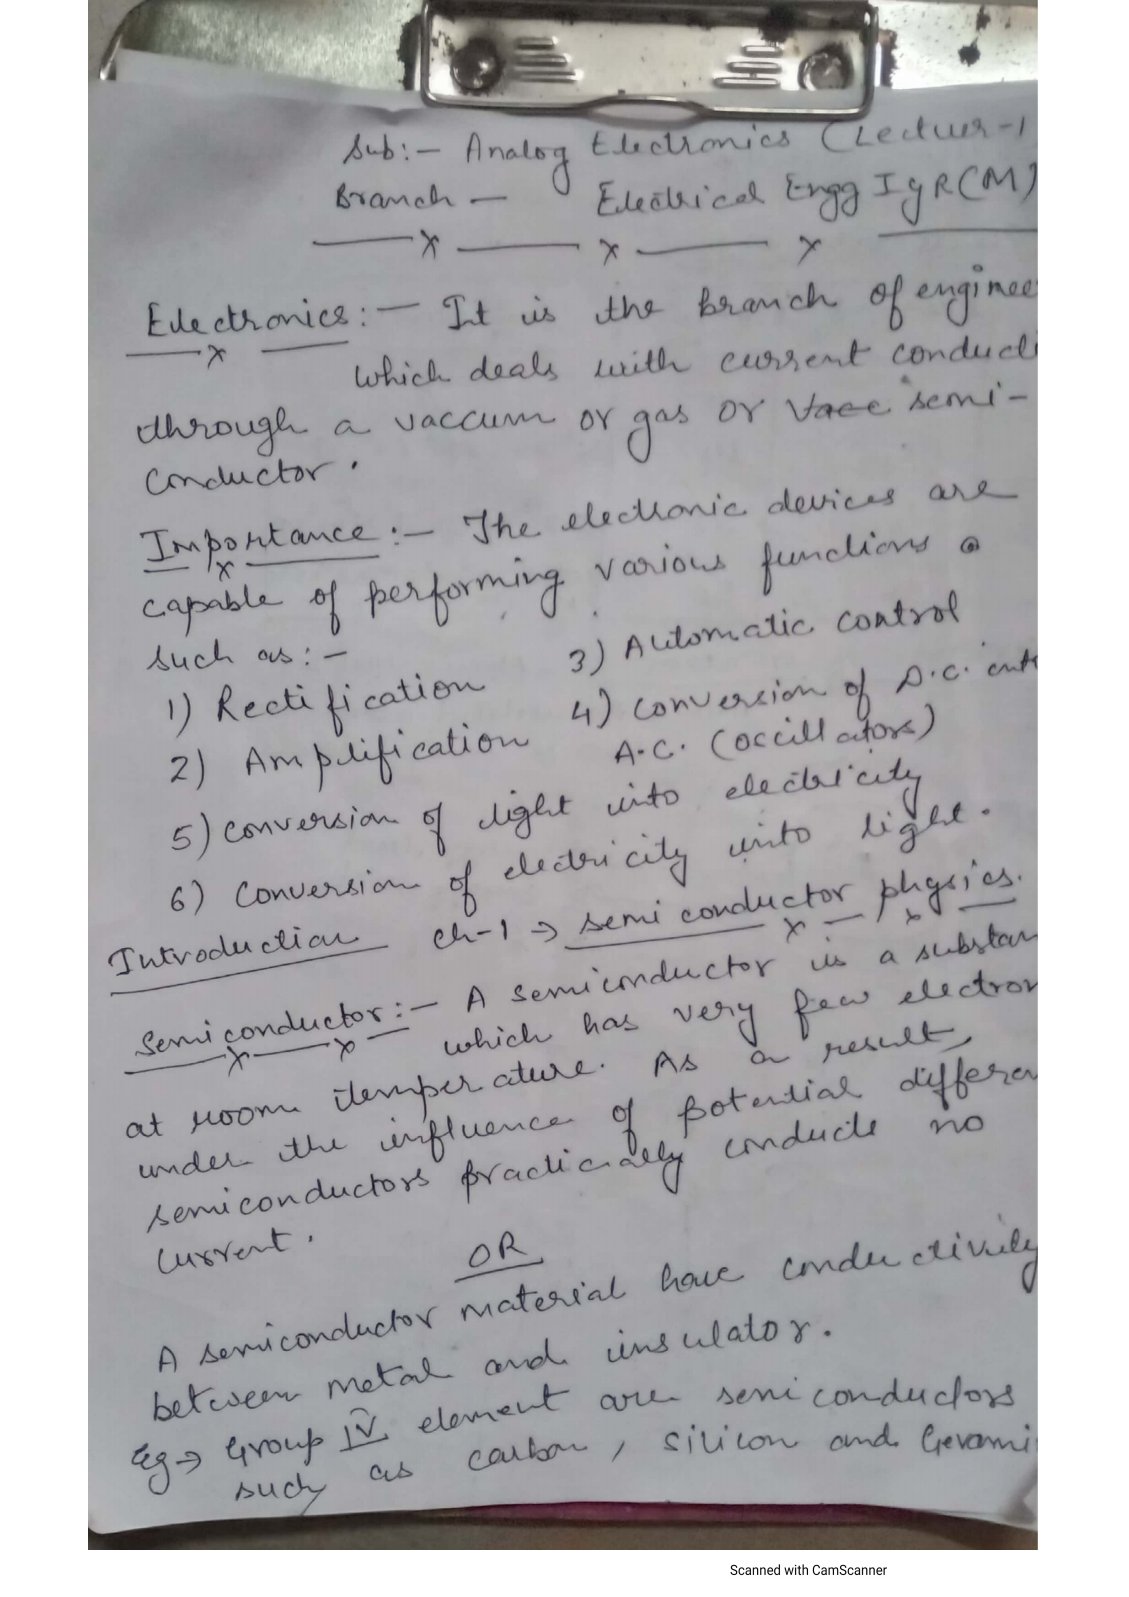 Sub:- Analog Electronics (Lectuer-1
Branch - Electrical Engg I yR(M)
Electronics:- It is the branch of enginee
which deals with current conducti
through a vaccum or gas or semi-
conductor.
Importance:- The electronic devices are
capable of performing various functions
such as:-
3) Automatic control
1) Rectification
4) Conversion of D.C. into
2) Amplification
A.C. (occillators)
5) Conversion of light into electricity
6) Conversion of electricity into light.
Introduction Ch-1 → Semi conductor physics.
Semiconductor:- A semiconductor is a substan
which has very few electron
at room temperature. As a result,
under the influence of potential differen
semiconductors practically conducts no
current.
OR
A semiconductor material have conductivity
between metal and insulator.
Eg → Group IV element are semiconductors
such as carbon, silicon and Gerami
Scanned with CamScanner